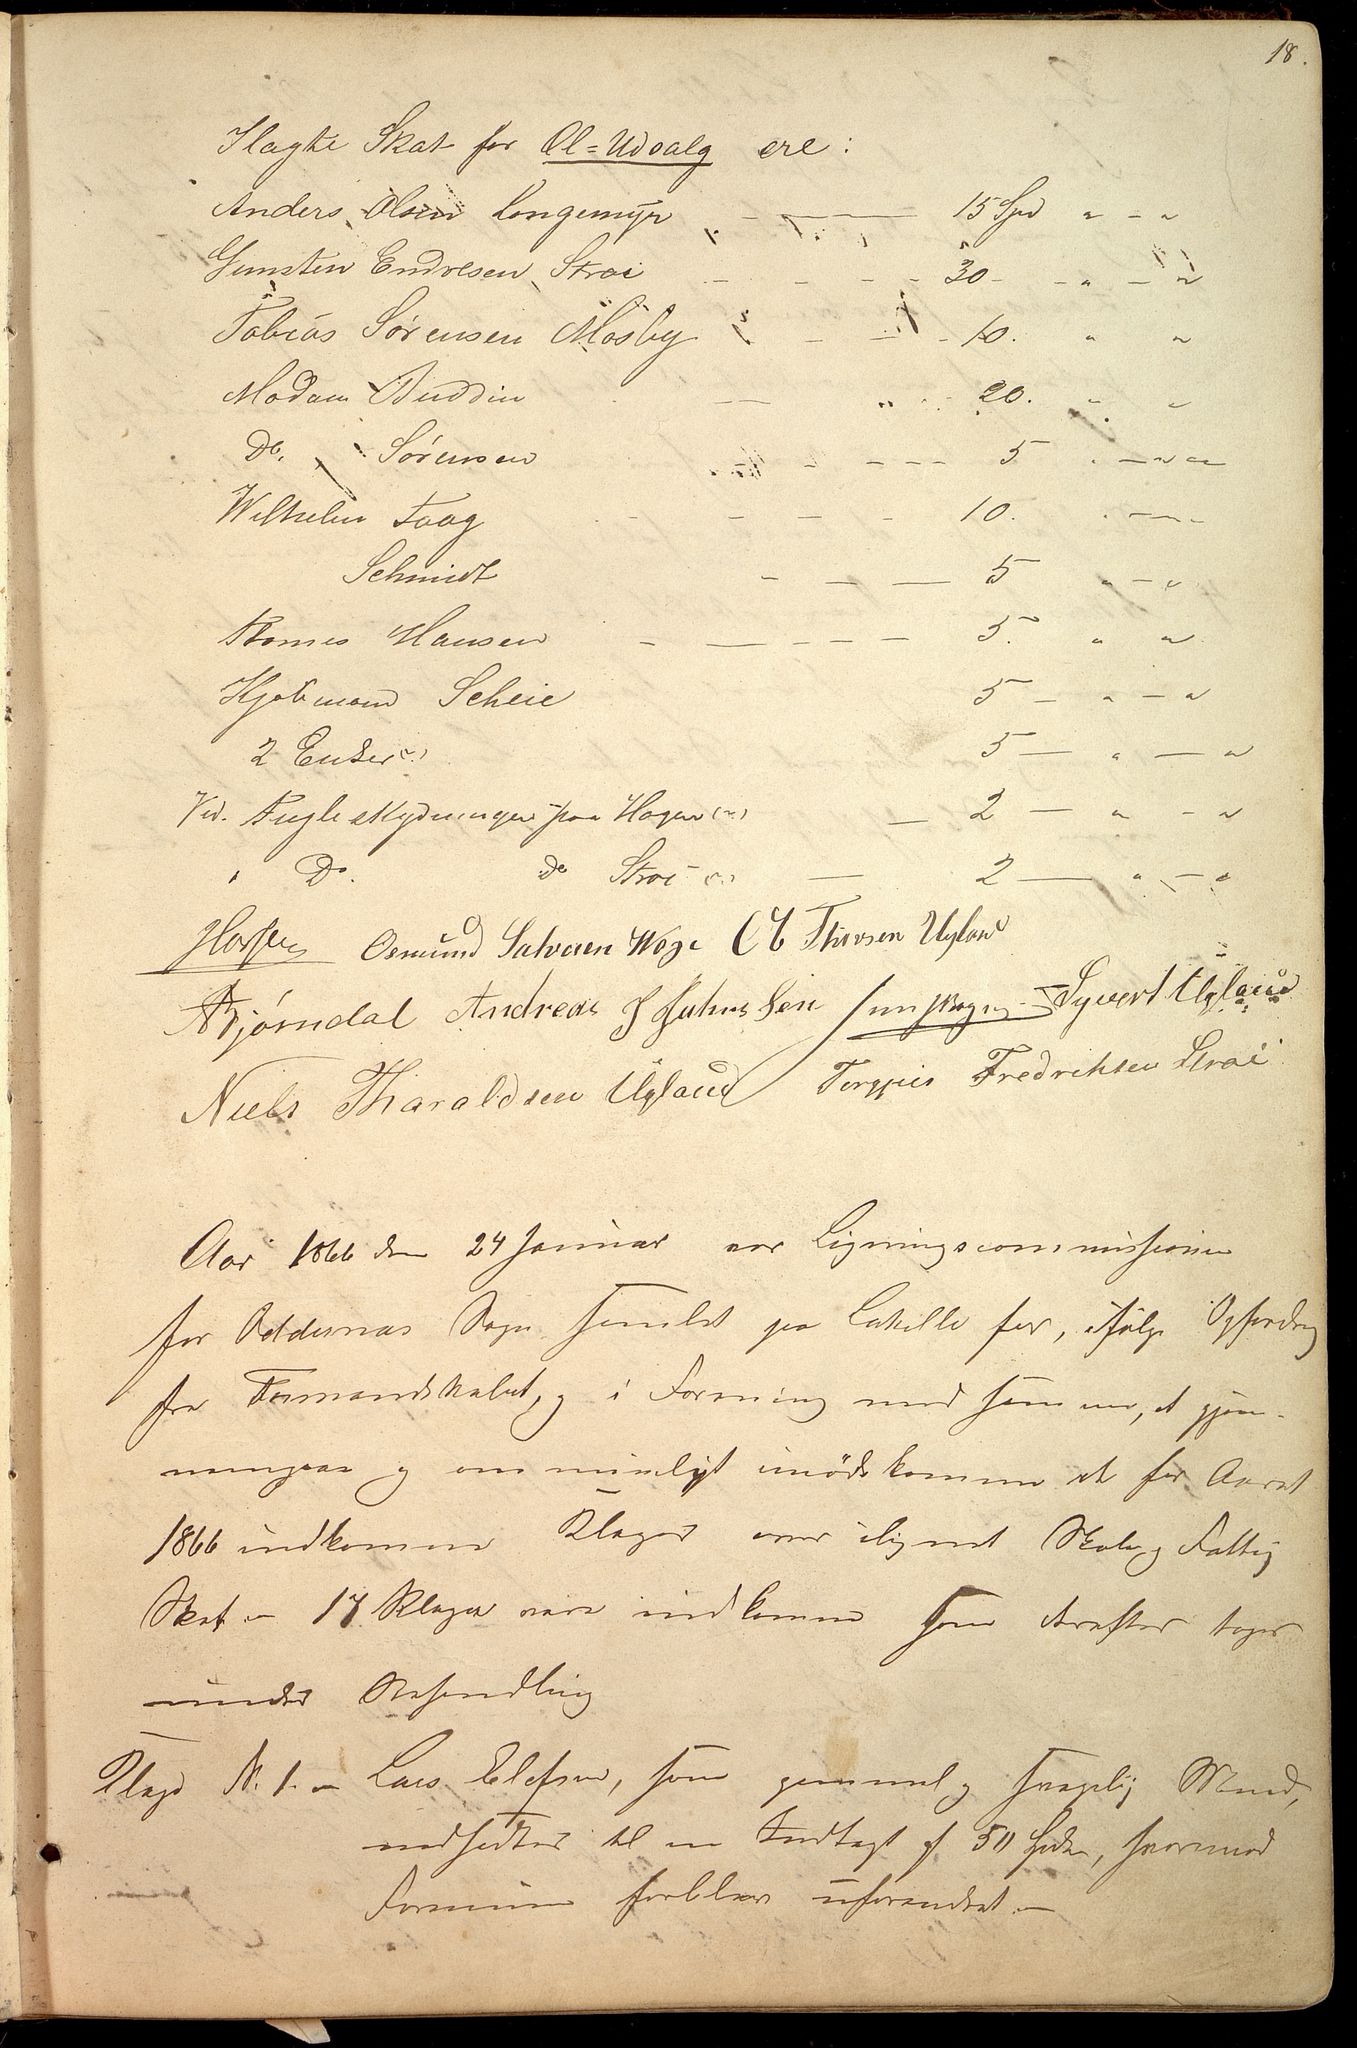 18.
Ilagte Skat for Øl=Udsalg ere:
Anders Olsen Longemyr — 15 Spd " — "
Gunsten Endresen Strai — 30 — " — "
Tobias Sørensen Mosby — 10. " "
Madam Buddin — 20. " "
Do. Sørensen — 5 " — "
Wilhelm Faag — 10. " —
Schmidt — 5 " — "
Thomas Hansen — 5. " "
Kjøbmand Scheie 5 — " — "
2 Enker 5 — " — "
Ved. Fugleskydningen paa Hagen — 2 — " — "
" Do. Do Strai — 2 — " — "
Osmund Salvesen Wege O E Thorsen Ugland
A Bjørndal Andreas J Johnssen Syvert Ugland
Niels Tharaldsen Ugland Torgjus Fredriksen Strai
Aar 1866 den 24 Januar var Ligningscommissionen
for Oddernes Sogn samlet paa for, ifølge Opfordring
fra Formandskabet, og i Forening med samme, at gjen-
nemgaa og om muligt imødekomme de for Aaret
1866 indkomne Klager over ilignet Skole og Fattig
Skat. — 17 Klager vare indkomne som derefter toges
under Behandling
Klage N. 1. — Lars Elefsen, som gammel og svagelig Mand,
nedsættes til en Indtægt af 50 Spd, hvorimod
Formuen forbliver uforandret. —